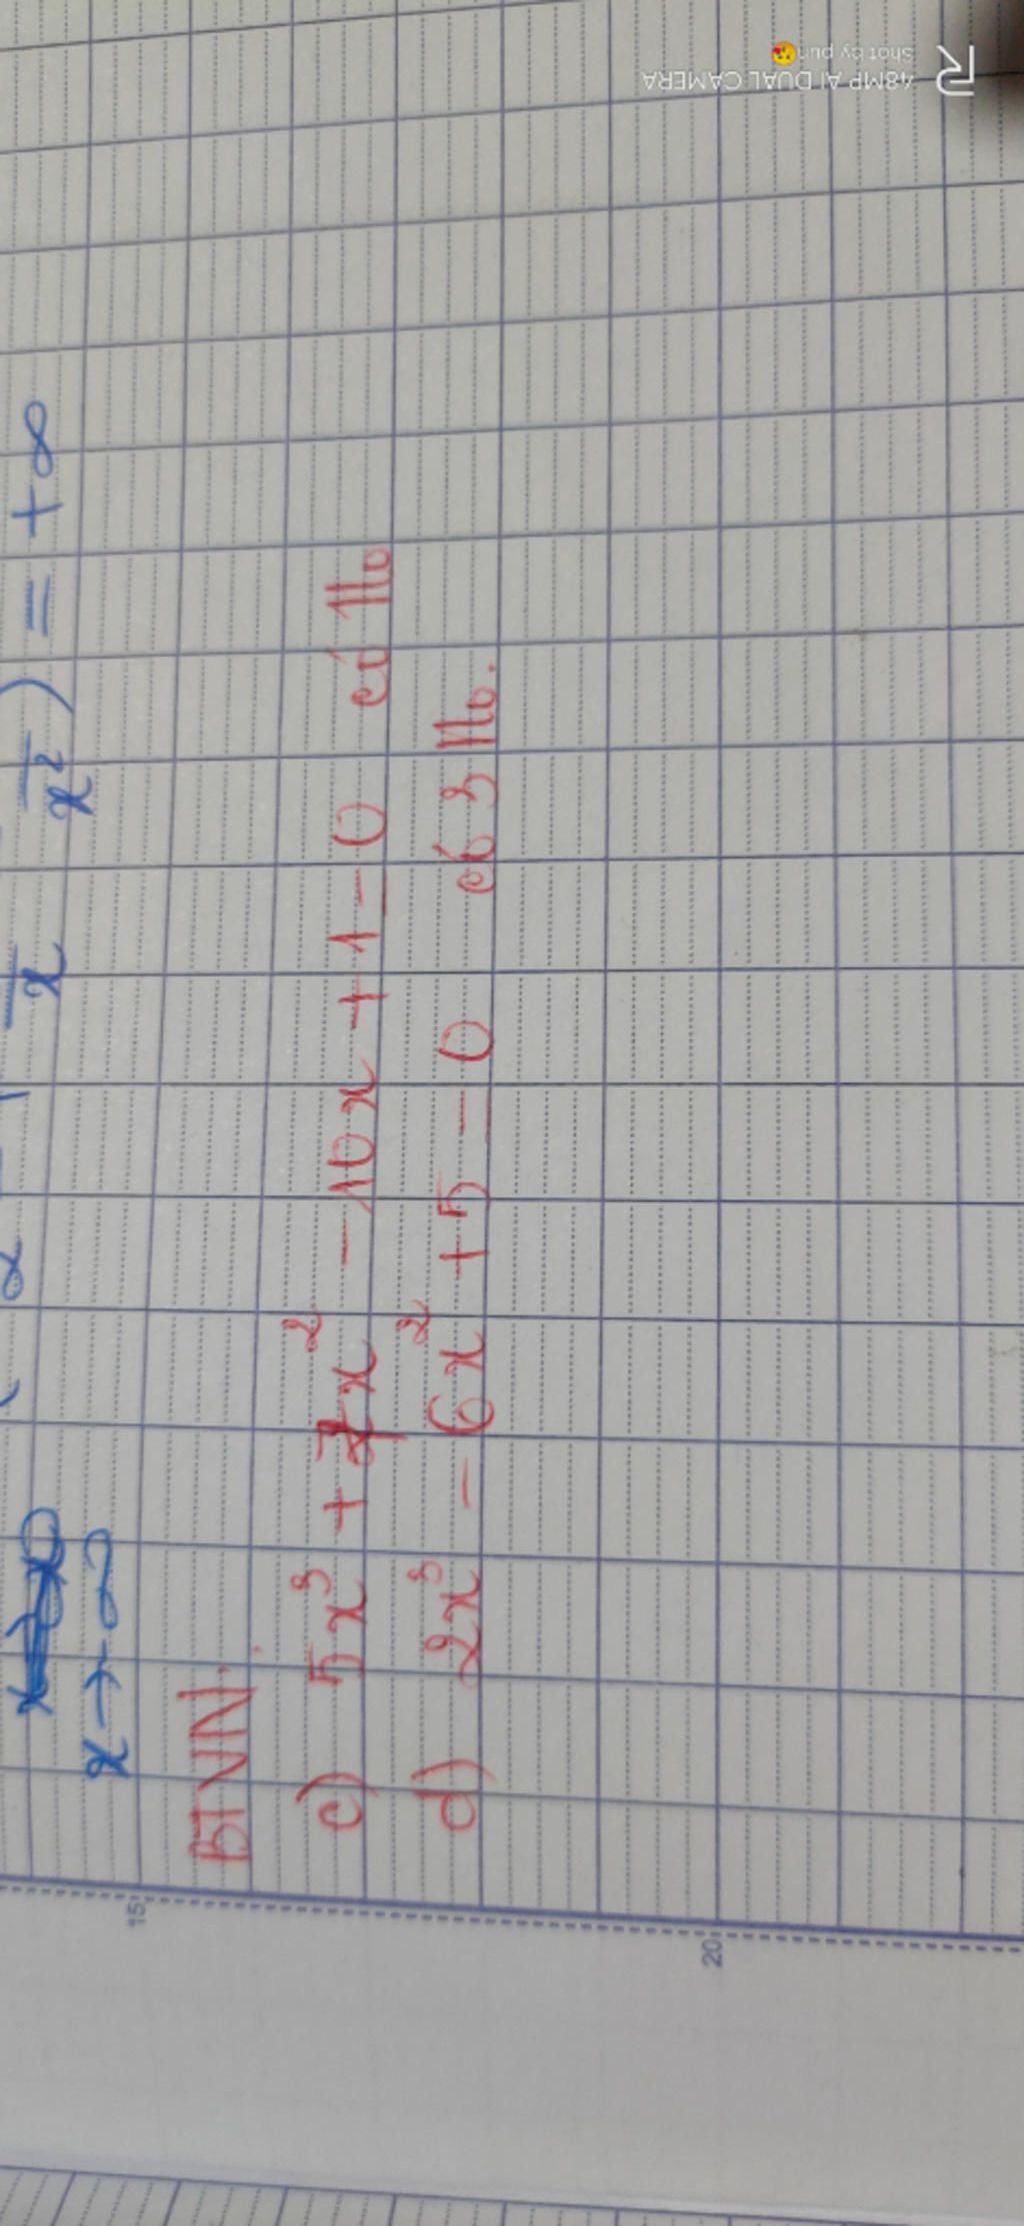 x → -∞
x
x²) = +∞
BTVN:
c) 5x³ + 7x² - 10x + 1 = 0 có No
d) 2x³ - 6x² + 5 = 0 có 3 No.
15
20
48MP AI DUAL CAMERA
Shot by pun